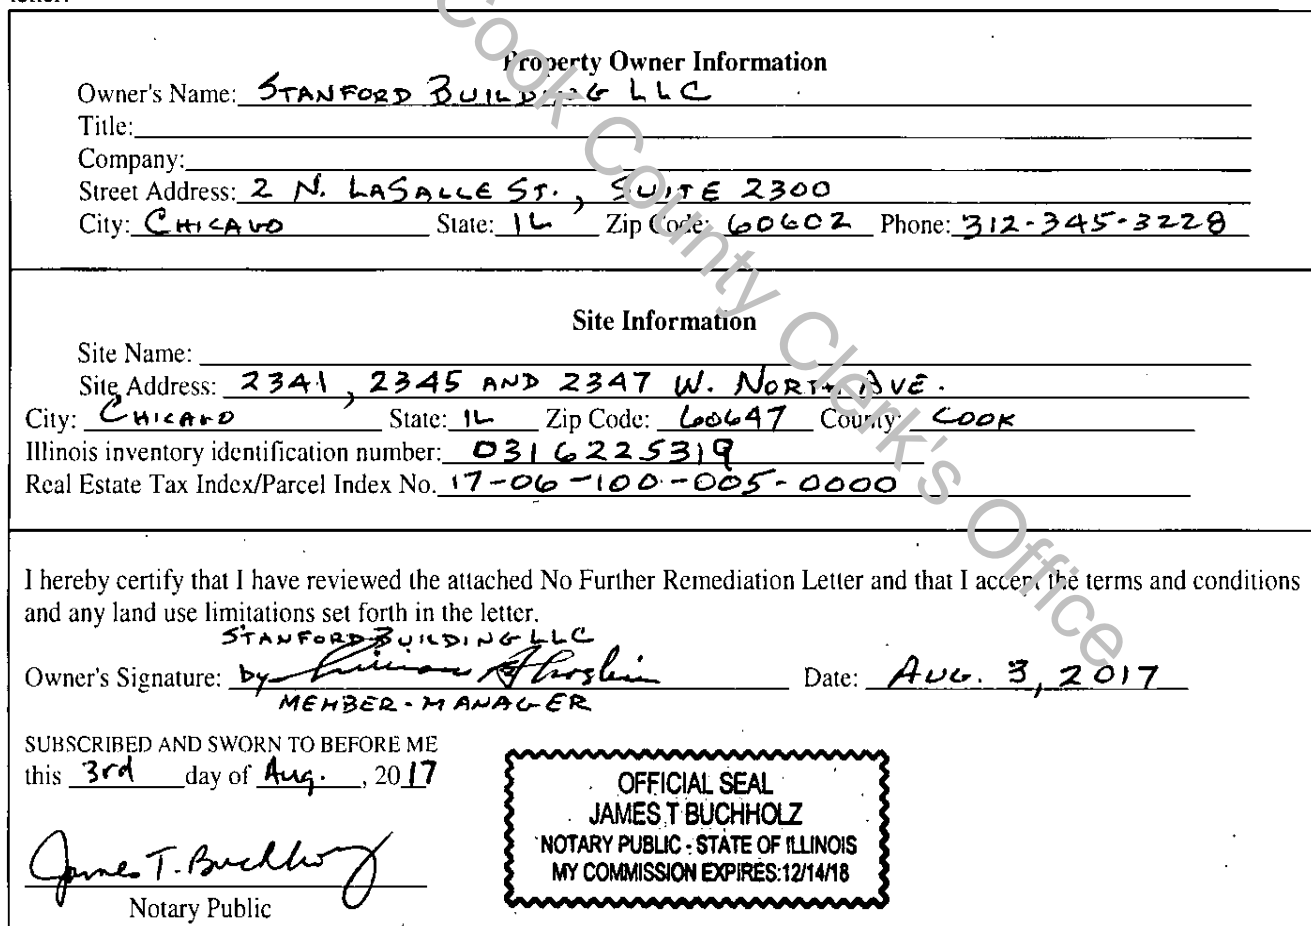 letter.
Property Owner Information
Owner's Name: STANFORD BUILDING LLC
Title:
Company:
Street Address: 2 N. LASALLE ST., SUITE 2300
City: CHICAGO State: IL Zip Code: 60602 Phone: 312-345-3228
Site Information
Site Name:
Site Address: 2341, 2345 AND 2347 W. NORTH AVE.
City: CHICAGO State: IL Zip Code: 60647 County: COOK
Illinois inventory identification number: 0316225319
Real Estate Tax Index/Parcel Index No. 17-06-100-005-0000
I hereby certify that I have reviewed the attached No Further Remediation Letter and that I accept the terms and conditions
and any land use limitations set forth in the letter.
STANFORD BUILDING LLC
Owner's Signature: by Date: AUG. 3, 2017
MEMBER-MANAGER
SUBSCRIBED AND SWORN TO BEFORE ME
this 3rd day of Aug., 2017
OFFICIAL SEAL
JAMES T BUCHHOLZ
NOTARY PUBLIC - STATE OF ILLINOIS
MY COMMISSION EXPIRES:12/14/18
James T. Buchholz
Notary Public
Cook County Clerk's Office